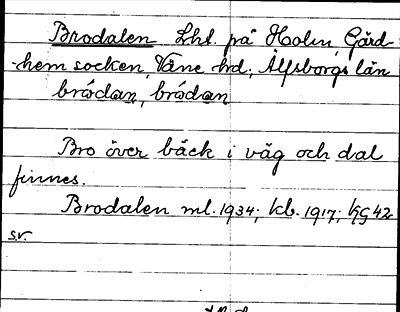 Brodalen Lht. på Holm, Gärd-
hem socken, Väne hd; Älfsborgs län
brǻdan, brǻdan
Bro över bäck i väg och dal
finnes.
Brodalen ml. 1934; kb. 1917; KG 42
sv.